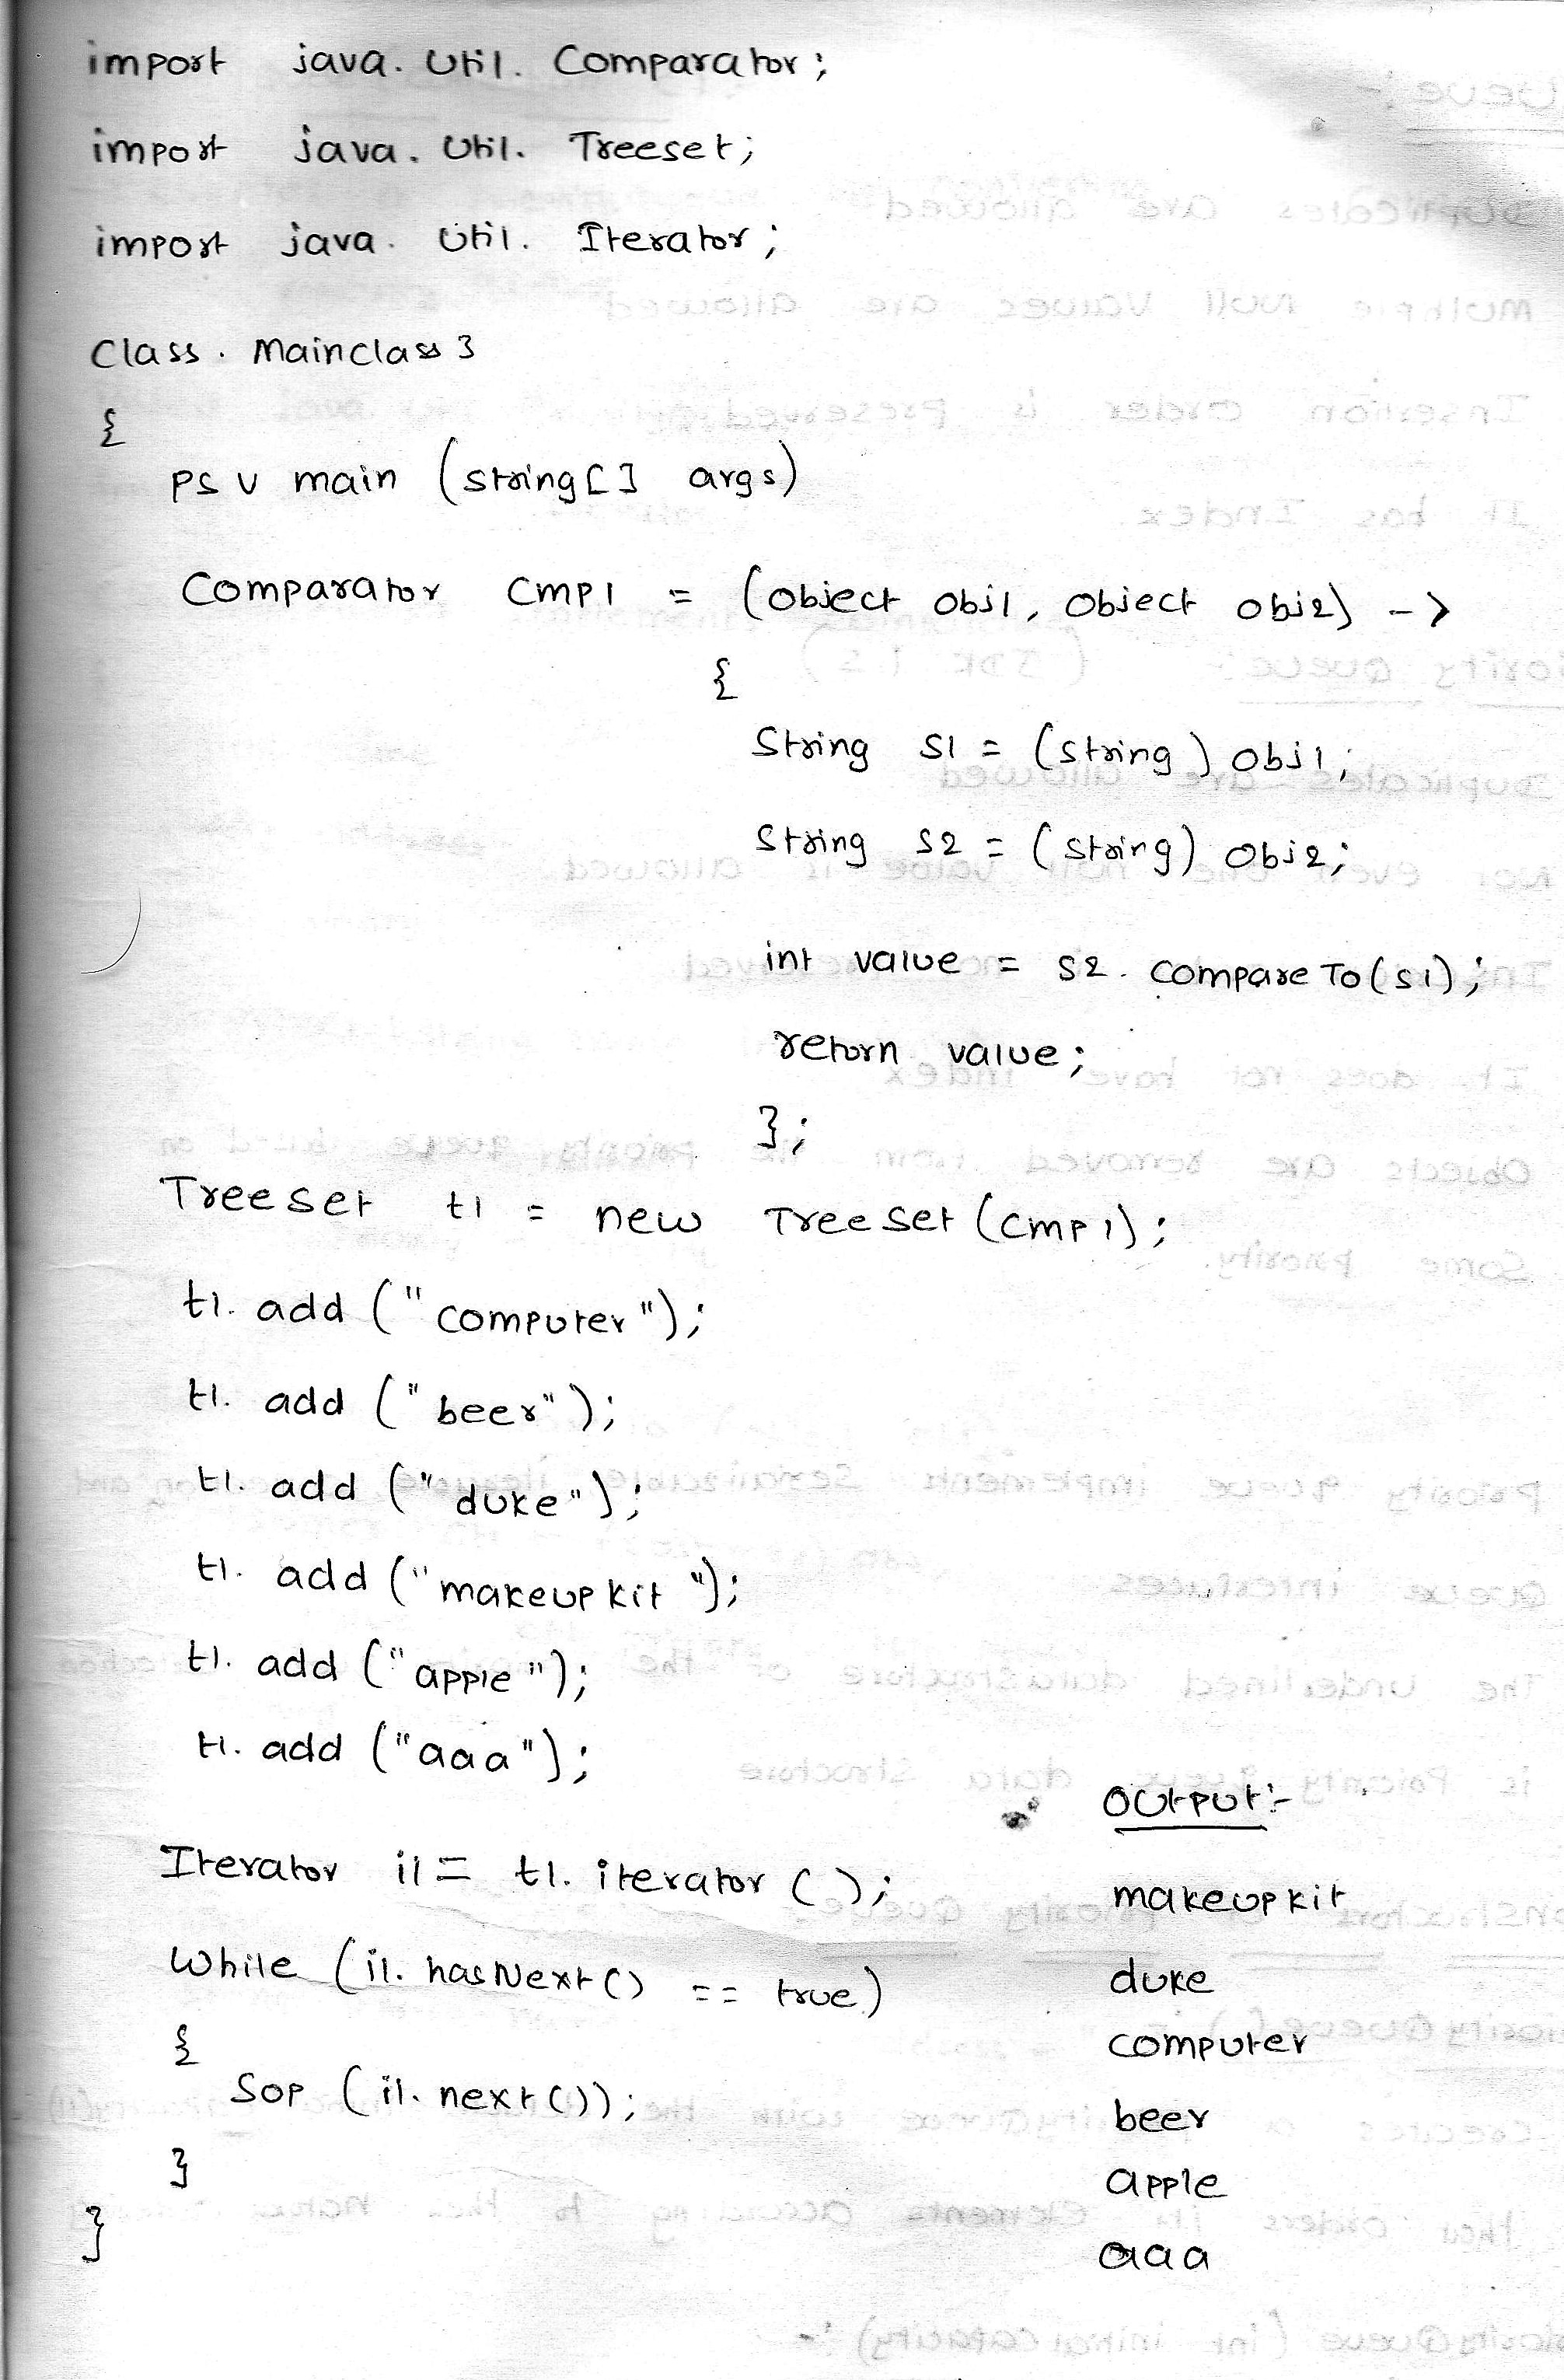 import java.util.Comparator;
import java.util.Treeset;
import java.util.Iterator;
Class. Mainclass3
{
PS V main (string[] args)
Comparator cmp1 = (object obj1, object obj2) ->
{
String s1 = (string) obj1;
String s2 = (string) obj2;
int value = s2.compareTo(s1);
return value;
};
Treeset t1 = new TreeSet(cmp1);
t1.add("computer");
t1.add("beer");
t1.add("duke");
t1.add("makeupkit");
t1.add("apple");
t1.add("aaa");
Iterator i1 = t1.iterator();
While (i1.hasNext() == true)
{
Sop (i1.next());
}
}
output:-
makeupkit
duke
computer
beer
apple
aaa